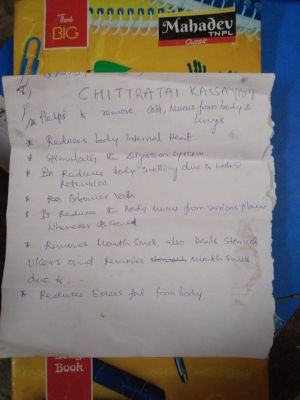 Think
BIG
Mahadev
TNPL
Classic
CHITTRATAI KASSAYAM
* Helps to remove cold, Mucus from body &
lungs
* Reduces body Internal Heat
* Stimulates the digestion system
* Reduces body Swelling due to water
Retension
* Balances Vata
* It Reduces the body mucus from various places
Wherever
* Removes Mouth Smell, also Heals Stomach
Ulcers and Removes mouth smell
due to ..
* Reduces Excess fat from body
Long
Book